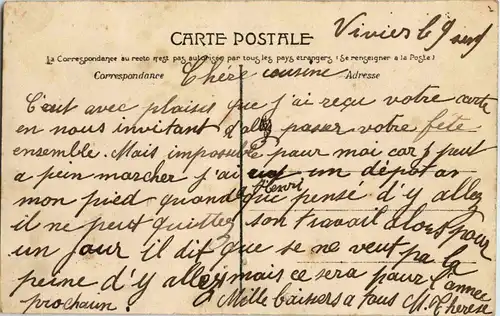 Vivier le 9
CARTE POSTALE
La Correspondance au recto n'est pas autorisée par tous les pays étrangers (Se renseigner à la Poste)
Correspondance Adresse
Chère cousine
C'est avec plaisir que j'ai reçu votre carte
en nous invitant d'allez passer votre fête
ensemble. Mais impossible pour moi car je peut
a pein marcher j'ai un dépot au
mon pied quand Henri que pensé d'y allez
il ne peut quittez son travail pour
un jour il dit que se ne veut pas la
peine d'y allez mais ce sera pour l'année
prochain. Mille baisers a tous M. Therese